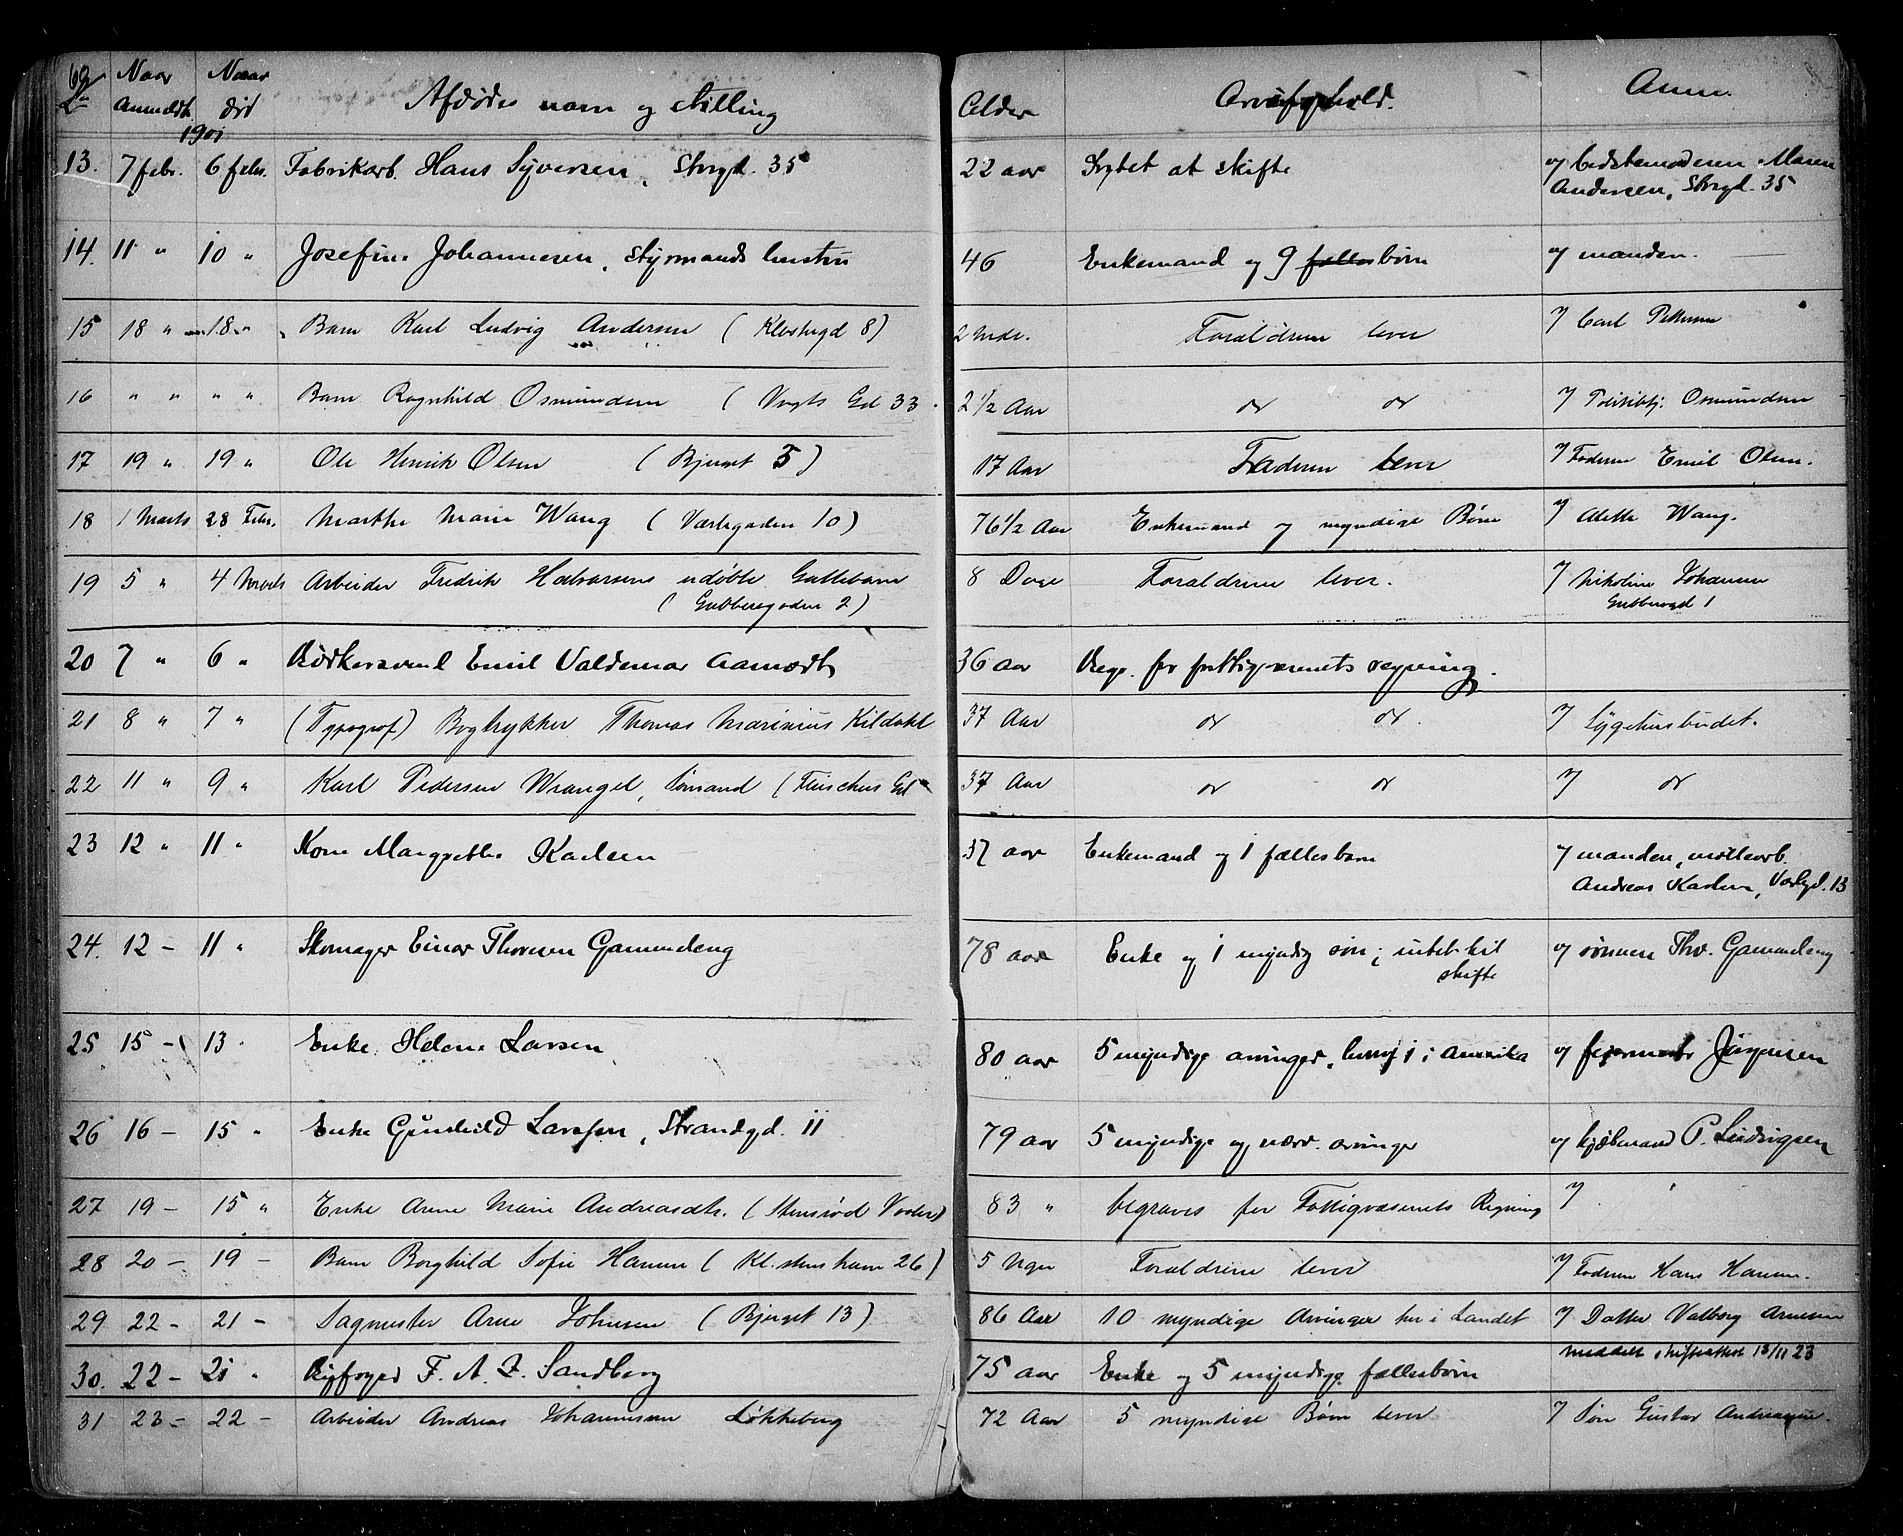 69
Naar Naar Afdødes navn og stilling Alder Arveforhold. Anm.
Lno anmeldt død
1901
13. 7 febr. 6 febr. Fabrikarb. Hans Syversen, Storgd. 35 22 aar Intet at skifte af bedstemoderen Maren
Andersen, Storgd. 35
14. 11 " 10 " Josefine Johannesen, styrmands hustru 46 Enkemand og 9 fællesbørn af manden.
15 18 " 18 " Barn Karl Ludvig Andersen (Klostergd 8) 2 Mdr. Forældrene lever af Carl Pettersen
16 " " " " Barn Ragnhild Osmundsen (Vogts Gd 33 2 1/2 Aar do do af Politibtj. Osmundsen
17 19 " 19 " Ole Henrik Olsen (Bjerget 5) 17 Aar Faderen lever af Faderen Emil Olsen.
18 1 Marts 28 Febr. Marthe Marie Wang (Værstegaden 10) 76 1/2 Aar Enkemand og myndige Børn af Alette Wang.
19 5 " 4 Marts Arbeider Fredrik Halvorsens udøbte Guttebarn 8 Dage Forældrene lever. af Nikoline Johansen
(Gubbegaden 2) Gubbegd 1
20 7 " 6 " Bødkersvend Emil Valdemar Aamodt 36 aar Begr. for fattigvæsenets regning.
21 8 " 7 " (Typograf) Bogtrykker Thomas Marinius Kildahl 37 Aar do do. af Sygehusbudet.
22 11 " 9 " Karl Pedersen Wrangel, Sømand ( Gd 37 Aar do do af do
23 12 " 11 " Kone Margrethe Karlsen 37 aar Enkemand og 1 fællesbarn af manden, møllearb.
Andreas Karlsen, Værstegd. 13
24. 12 - 11 " Skomager Einar Thoresen Gammeleng 78 aar Enke og 1 myndig søn; intet til af sønnen Thv. Gammeleng
skifte
25 15 - 13 Enke Helene Larsen 80 aar 5 myndige arvinger, hvoraf 1 i Amerika af feiermester Jørgensen
26 16 - 15 " Enke Gunhild Larssen, Strandgd. 11 79 aar 5 myndige og nærv. arvinger af kjøbmand P. Ludvigsen
27 19 - 15 " Enke Anne Marie Andreasdtr. (Stensrød Vaaler) 83 " begraves for Fattigvæsenets Regning af
28 20 - 19 - Barn Borghild Sofie Hansen (Kl. stenshavn 26) 5 Uger Forældrene lever af Faderen Hans Hansen.
29 22 - 21 - Sagmester Arne Johnsen (Bjerget 13) 86 Aar 10 myndige Arvinger her i Landet af Datter Valborg Arnesen
meddelt skifteattest 13/11 23
30. 22 - 21 " Byfoged F. A. Z. Sandberg 75 aar Enke og 5 myndige fællesbørn
31 23 - 22 - Arbeider Andreas Johannesen Løkkeberg 72 Aar 5 myndige Børn lever af Søn Gustav Andreassen.